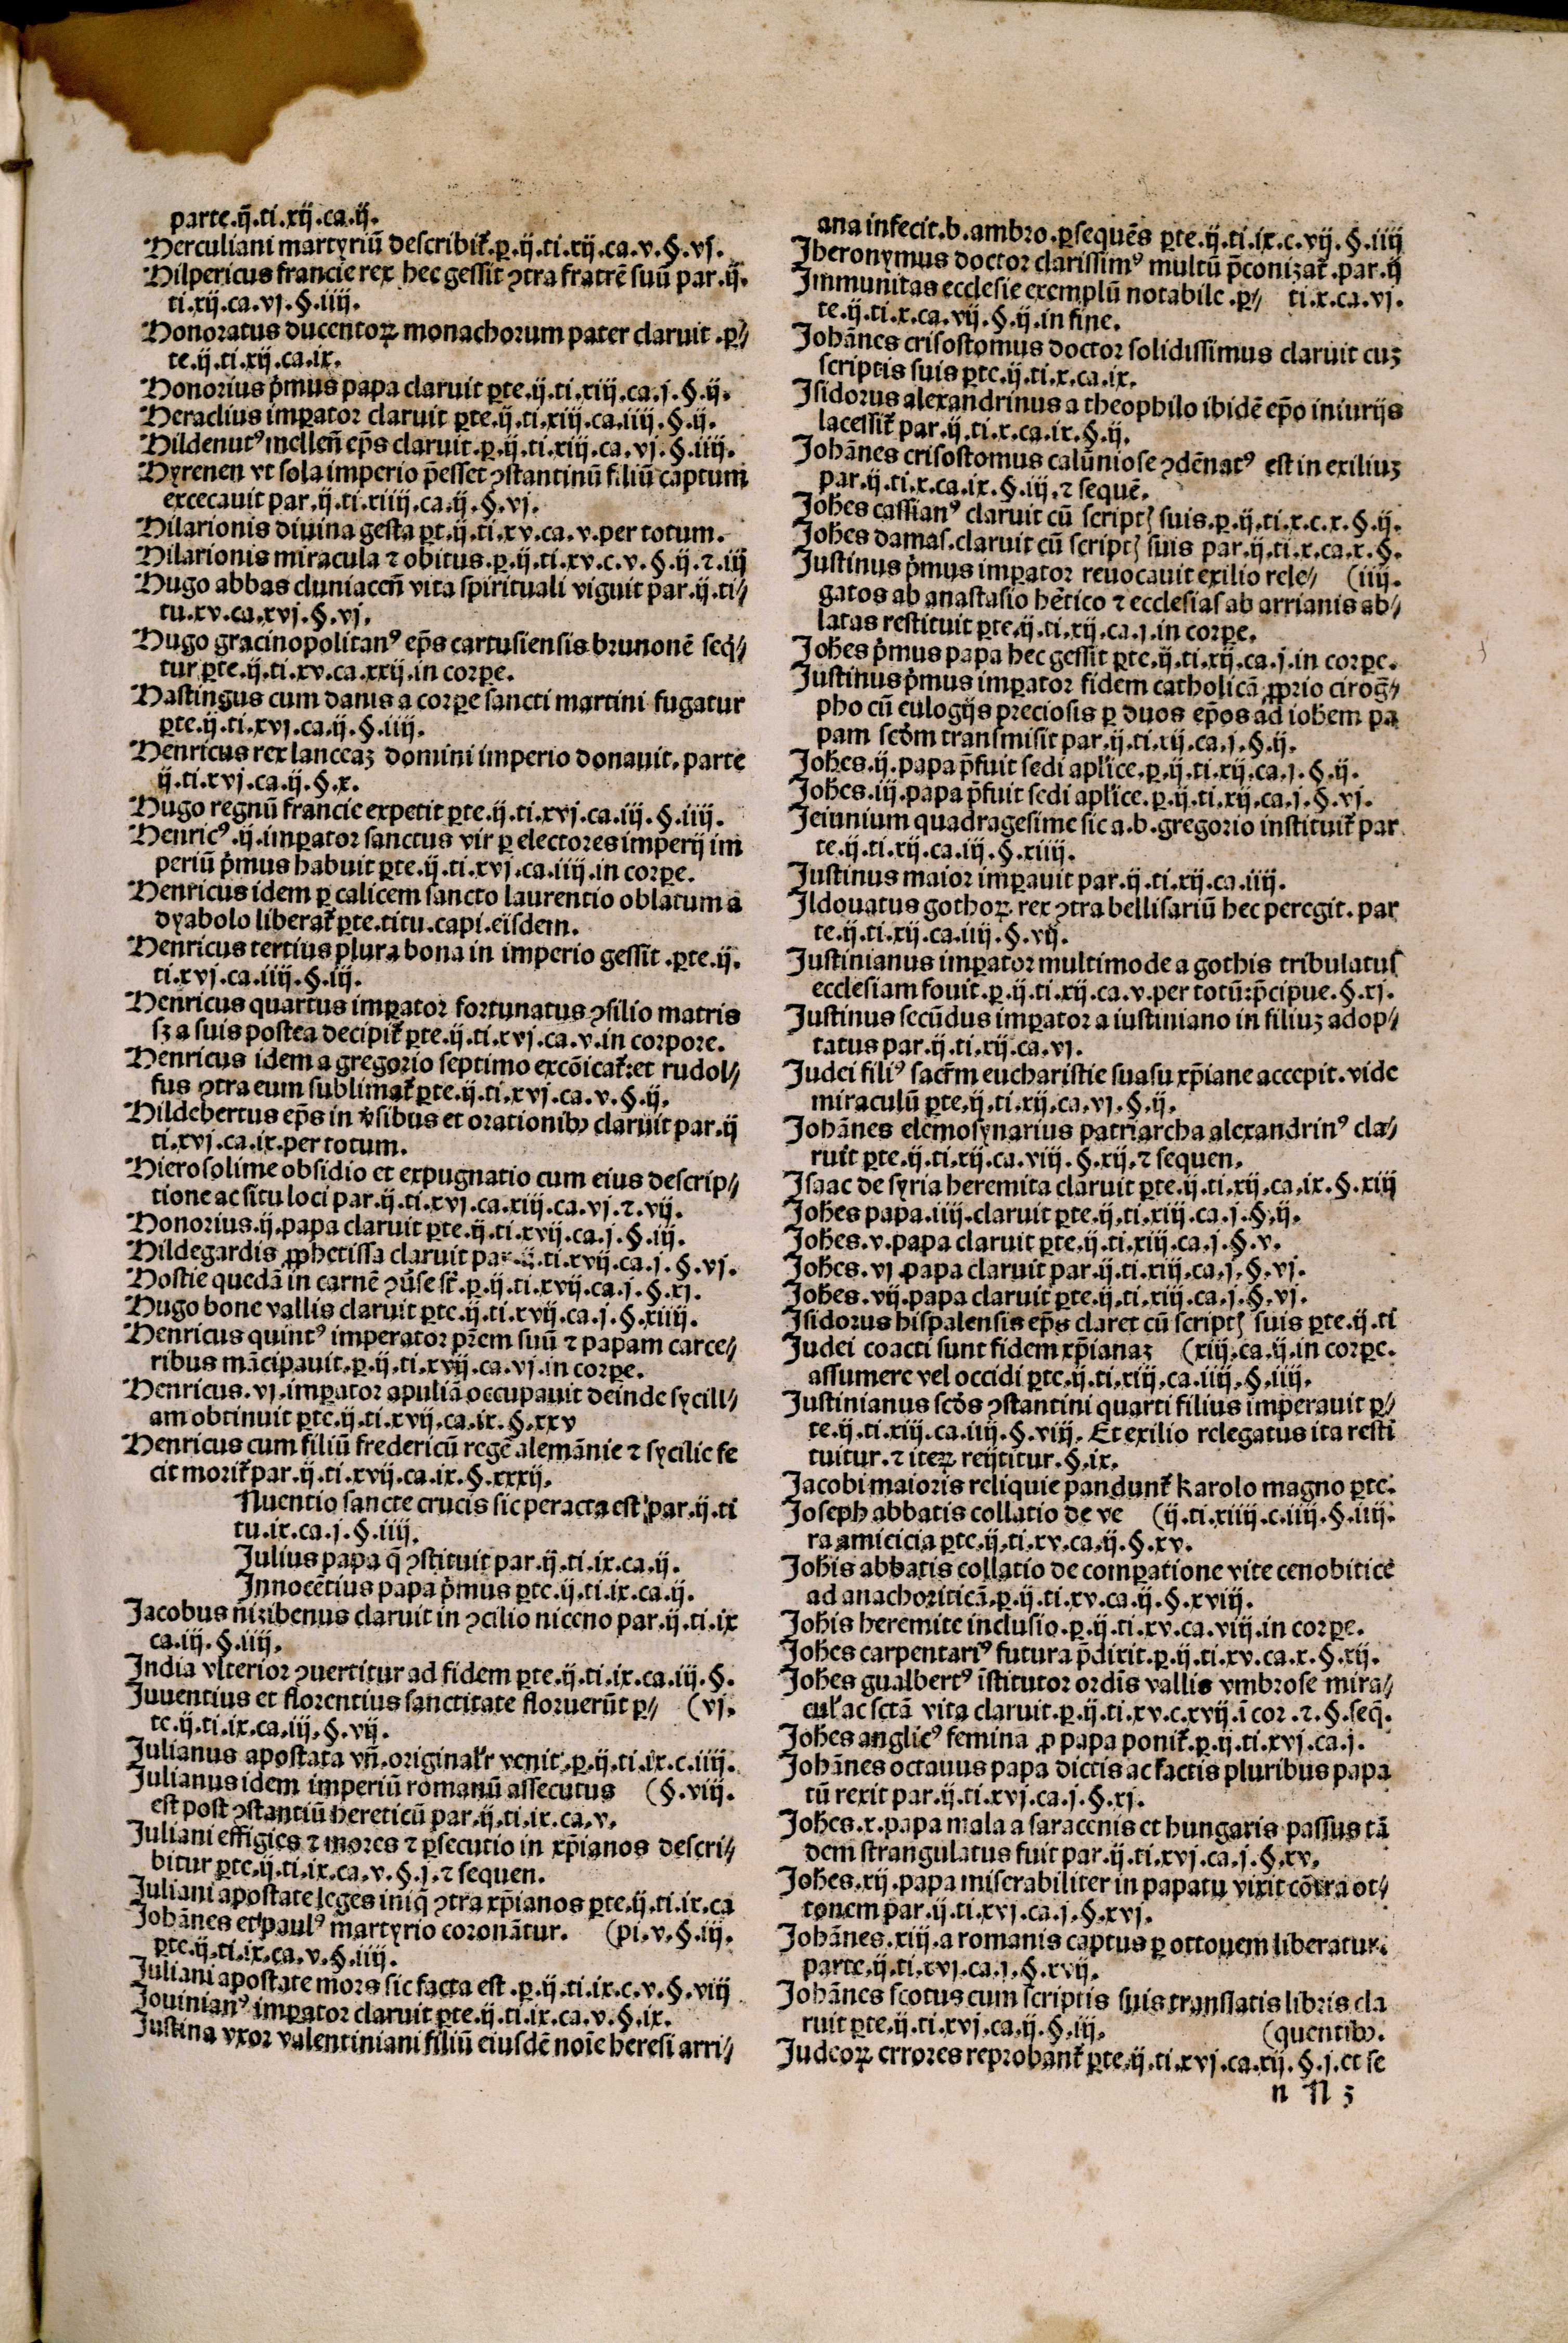 parte.ij̄.ti.xij.ca.ij.
Herculiani martyriū describit᷑.ꝑ.ij.ti.xij.ca.v.§.vj.
Hilpericus francie rex hec gessit ꝯtra fratrē suū par.ij.
ti.xij.ca.vj.§.iiij.
Honoratus ducentoꝝ monachorum pater claruit .ꝑ⸗
te.ij.ti.xij.ca.ix.
Honorius p̄mus papa claruit ꝑte.ij.ti.xiij.ca.j.§.ij.
Heraclius imꝑator claruit ꝑte.ij.ti.xiij.ca.iiij.§.ij.
Hildenutꝰ mellen̄ ep̄s claruit.ꝑ.ij.ti.xiij.ca.vj.§.iiij.
Hyrenen vt sola imperio p̄esset ꝯstantinū filiū captum
excecauit par.ij.ti.xiiij.ca.ij.§.vj.
Hilarionis diuina gesta ꝑt.ij.ti.xv.ca.v.per totum.
Hilarionis miracula ⁊ obitus.ꝑ.ij.ti.xv.c.v.§.ij.⁊.iij
Hugo abbas cluniaceñ vita spirituali viguit par.ij.ti⸗
tu.xv.ca.xvj.§.vj.
Hugo gracinopolitanꝰ ep̄s cartusiensis brunonē seq̄⸗
tur ꝑte.ij.ti.xv.ca.xxij.in corꝑe.
Hastingus cum danis a corꝑe sancti martini fugatur
ꝑte.ij.ti.xvj.ca.ij.§.iiij.
Henricus rex lanceaꝫ domini imperio donauit.parte
ij.ti.xvj.ca.ij.§.x.
Hugo regnū francie expetit ꝑte.ij.ti.xvj.ca.iij.§.iiij.
Henricꝰ.ij.imꝑator sanctus vir ꝑ electores imperij im
periū p̄mus habuit ꝑte.ij.ti.xvj.ca.iiij.in corꝑe.
Henricus idem ꝑ calicem sancto laurentio oblatum a
dyabolo liberat᷑ ꝑte.titu.capi.eisdem.
Henricus tertius plura bona in imperio gessit .ꝑte.ij.
ti.xvj.ca.iiij.§.iij.
Henricus quartus imꝑator fortunatus ꝯsilio matris
sꝫ a suis postea decipit᷑ ꝑte.ij.ti.xvj.ca.v.in corpore.
Henricus idem a gregorio septimo excōicat᷑:et rudol⸗
fus ꝯtra eum sublimat᷑ ꝑte.ij.ti.xvj.ca.v.§.ij.
Hildebertus ep̄s in v̄sibus et orationibꝰ claruit par.ij
ti.xvj.ca.ix.per totum.
Hierosolime obsidio et expugnatio cum eius descrip⸗
tione ac situ loci par.ij.ti.xvj.ca.xiij.ca.vj.⁊.vij.
Honorius.ij.papa claruit ꝑte.ij.ti.xvij.ca.j.§.iij.
Hildegardis ꝓphetissa claruit par.ij.ti.xvij.ca.j.§.vj.
Hostie quedā in carnē ꝯūse st̄.ꝑ.ij.ti.xvij.ca.j.§.xj.
Hugo bone vallis claruit ꝑte.ij.ti.xvij.ca.j.§.xiiij.
Henricus quintꝰ imperator pr̄em suū ⁊ papam carce⸗
ribus mācipauit.ꝑ.ij.ti.xvij.ca.vj.in corꝑe.
Henricus.vj.imꝑator apuliā occupauit deinde sycill⸗
am obtinuit ꝑte.ij.ti.xvij.ca.ix.§.xxv
Henricus cum filiū fredericū regē alemānie ⁊ sycilie fe
cit morit᷑ par.ij.ti.xvij.ca.ix.§.xxxij.
Nuentio sancte crucis sic peracta est par.ij.ti
tu.ix.ca.j.§.iiij.
Julius papa q̄ ꝯstituit par.ij.ti.ix.ca.ij.
Innocētius papa p̄mus ꝑte.ij.ti.ix.ca.ij.
Jacobus nizibenus claruit in ꝯcilio niceno par.ij.ti.ix
ca.iij.§.iiij.
India vlterior ꝯuertitur ad fidem ꝑte.ij.ti.ix.ca.iij.§.
Juuentius et florentius sanctitate floruerūt ꝑ⸗ (vj.
te.ij.ti.ix.ca.iij.§.vij.
Julianus apostata vn̄.original̄r venit.ꝑ.ij.ti.ix.c.iiij.
Julianus idem imperiū romanū assecutus (§.viij.
est post ꝯstantiū hereticū par.ij.ti.ix.ca.v.
Juliani effigies ⁊ mores ⁊ ꝑsecutio in xp̄ianos descri⸗
bitur ꝑte.ij.ti.ix.ca.v.§.j.⁊ sequen.
Juliani apostate leges iniq̄ ꝯtra xp̄ianos ꝑte.ij.ti.ix.ca
Johānes et paulꝰ martyrio coronātur. (pi.v.§.iij.
ꝑte.ij.ti.ix.ca.v.§.iiij.
Juliani apostate mors sic facta est .ꝑ.ij.ti.ix.c.v.§.viij
Jouinianꝰ imꝑator claruit ꝑte.ij.ti.ix.ca.v.§.ix.
Justina vxor valentiniani filiū eiusdē noīe heresi arri⸗
ana infecit.b.ambro.ꝑsequēs ꝑte.ij.ti.ix.c.vij.§.iiij
Jheronymus doctor clarissimꝰ multū p̄conizat᷑.par.ij
Immunitas ecclesie exemplū notabile .ꝑ⸗ ti.x.ca.vj.
te.ij.ti.x.ca.vij.§.ij.in fine.
Johānes crisostomus doctor solidissimus claruit cuꝫ
scriptis suis ꝑte.ij.ti.x.ca.ix.
Isidorus alexandrinus a theophilo ibidē ep̄o iniurijs
lacessit᷑ par.ij.ti.x.ca.ix.§.ij.
Johānes crisostomus calūniose ꝯdēnatꝰ est in exiliuꝫ
par.ij.ti.x.ca.ix.§.iij.⁊ sequē.
Joh̄es cassianꝰ claruit cū scriptꝭ suis.ꝑ.ij.ti.x.c.x.§.ij.
Joh̄es damas.claruit cū scriptꝭ suis par.ij.ti.x.ca.x.§.
Justinus p̄mus imꝑator reuocauit exilio rele⸗ (iiij.
gatos ab anastasio hētico ⁊ ecclesias ab arrianis ab⸗
latas restituit ꝑte.ij.ti.xij.ca.j.in corꝑe.
Joh̄es p̄mus papa hec gessit ꝑte.ij.ti.xij.ca.j.in corꝑe.
Justinus p̄mus imꝑator fidem catholicā ꝓprio cirog̃⸗
pho cū eulogijs preciosis ꝑ duos ep̄os ad ioh̄em pa
pam scōm transmisit par.ij.ti.xij.ca.j.§.ij.
Joh̄es.ij.papa p̄fuit sedi apl̄ice.ꝑ.ij.ti.xij.ca.j.§.ij.
Joh̄es.iij.papa p̄fuit sedi apl̄ice.ꝑ.ij.ti.xij.ca.j.§.vj.
Jeiunium quadragesime sic a.b.gregorio instituit᷑ par
te.ij.ti.xij.ca.iij.§.xiiij.
Justinus maior imꝑauit par.ij.ti.xij.ca.iiij.
Ildouatus gothoꝝ rex ꝯtra bellisariū hec peregit.par
te.ij.ti.xij.ca.iiij.§.vij.
Justinianus imꝑator multimode a gothis tribulatus
ecclesiam fouit.ꝑ.ij.ti.xij.ca.v.per totū:p̄cipue.§.xj.
Justinus secūdus imꝑator a iustiniano in filiuꝫ adop⸗
tatus par.ij.ti.xij.ca.vj.
Judei filiꝰ sacr̄m eucharistie suasu xp̄iane accepit.vide
miraculū ꝑte.ij.ti.xij.ca.vj.§.ij.
Johānes elemosynarius patriarcha alexandrinꝰ cla⸗
ruit ꝑte.ij.ti.xij.ca.viij.§.xij.⁊ sequen.
Isaac de syria heremita claruit ꝑte.ij.ti.xij.ca.ix.§.xiij
Joh̄es papa.iiij.claruit ꝑte.ij.ti.xiij.ca.j.§.ij.
Joh̄es.v.papa claruit ꝑte.ij.ti.xiij.ca.j.§.v.
Joh̄es.vj.papa claruit par.ij.ti.xiij.ca.j.§.vj.
Joh̄es.vij.papa claruit ꝑte.ij.ti.xiij.ca.j.§.vj.
Isidorus hispalensis ep̄s claret cū scriptꝭ suis ꝑte.ij.ti
Judei coacti sunt fidem xp̄ianaꝫ (xiij.ca.ij.in corꝑe.
assumere vel occidi ꝑte.ij.ti.xiij.ca.iiij.§.iiij.
Justinianus scd̄s ꝯstantini quarti filius imperauit ꝑ⸗
te.ij.ti.xiij.ca.iiij.§.viij. Et exilio relegatus ita resti
tuitur.⁊ iteꝝ reijtitur.§.ix.
Jacobi maioris reliquie pandunt᷑ karolo magno ꝑte.
Joseph abbatis collatio de ve (ij.ti.xiiij.c.iiij.§.iiij.
ra amicicia ꝑte.ij.ti.xv.ca.ij.§.xv.
Joh̄is abbatis collatio de comꝑatione vite cenobitice
ad anachoriticā.ꝑ.ij.ti.xv.ca.ij.§.xviij.
Joh̄is heremite inclusio.ꝑ.ij.ti.xv.ca.viij.in corꝑe.
Joh̄es carpentariꝰ futura p̄dixit.ꝑ.ij.ti.xv.ca.x.§.xij.
Joh̄es gualbertꝰ īstitutor ordīs vallis vmbrose mira⸗
cul̄ ac sctā vita claruit.ꝑ.ij.ti.xv.c.xvij.ī cor.⁊.§.seq̄.
Joh̄es anglicꝰ femina ꝓ papa ponit᷑.ꝑ.ij.ti.xvj.ca.j.
Johānes octauus papa dictis ac factis pluribus papa
tū rexit par.ij.ti.xvj.ca.j.§.xj.
Joh̄es.x.papa mala a saracenis et hungaris passus tā
dem strangulatus fuit par.ij.ti.xvj.ca.j.§.xv.
Joh̄es.xij.papa miserabiliter in papatu vixit cōtra ot⸗
tonem par.ij.ti.xvj.ca.j.§.xvj.
Johānes.xiij.a romanis captus ꝑ ottonem liberatur.
parte.ij.ti.xvj.ca.j.§.xvij.
Johānes scotus cum scriptis suis translatis libris cla
ruit ꝑte.ij.ti.xvj.ca.ij.§.iij. (quentibꝰ.
Judeoꝝ errores reprobant᷑ ꝑte.ij.ti.xvj.ca.xij.§.j.et se
n N 3